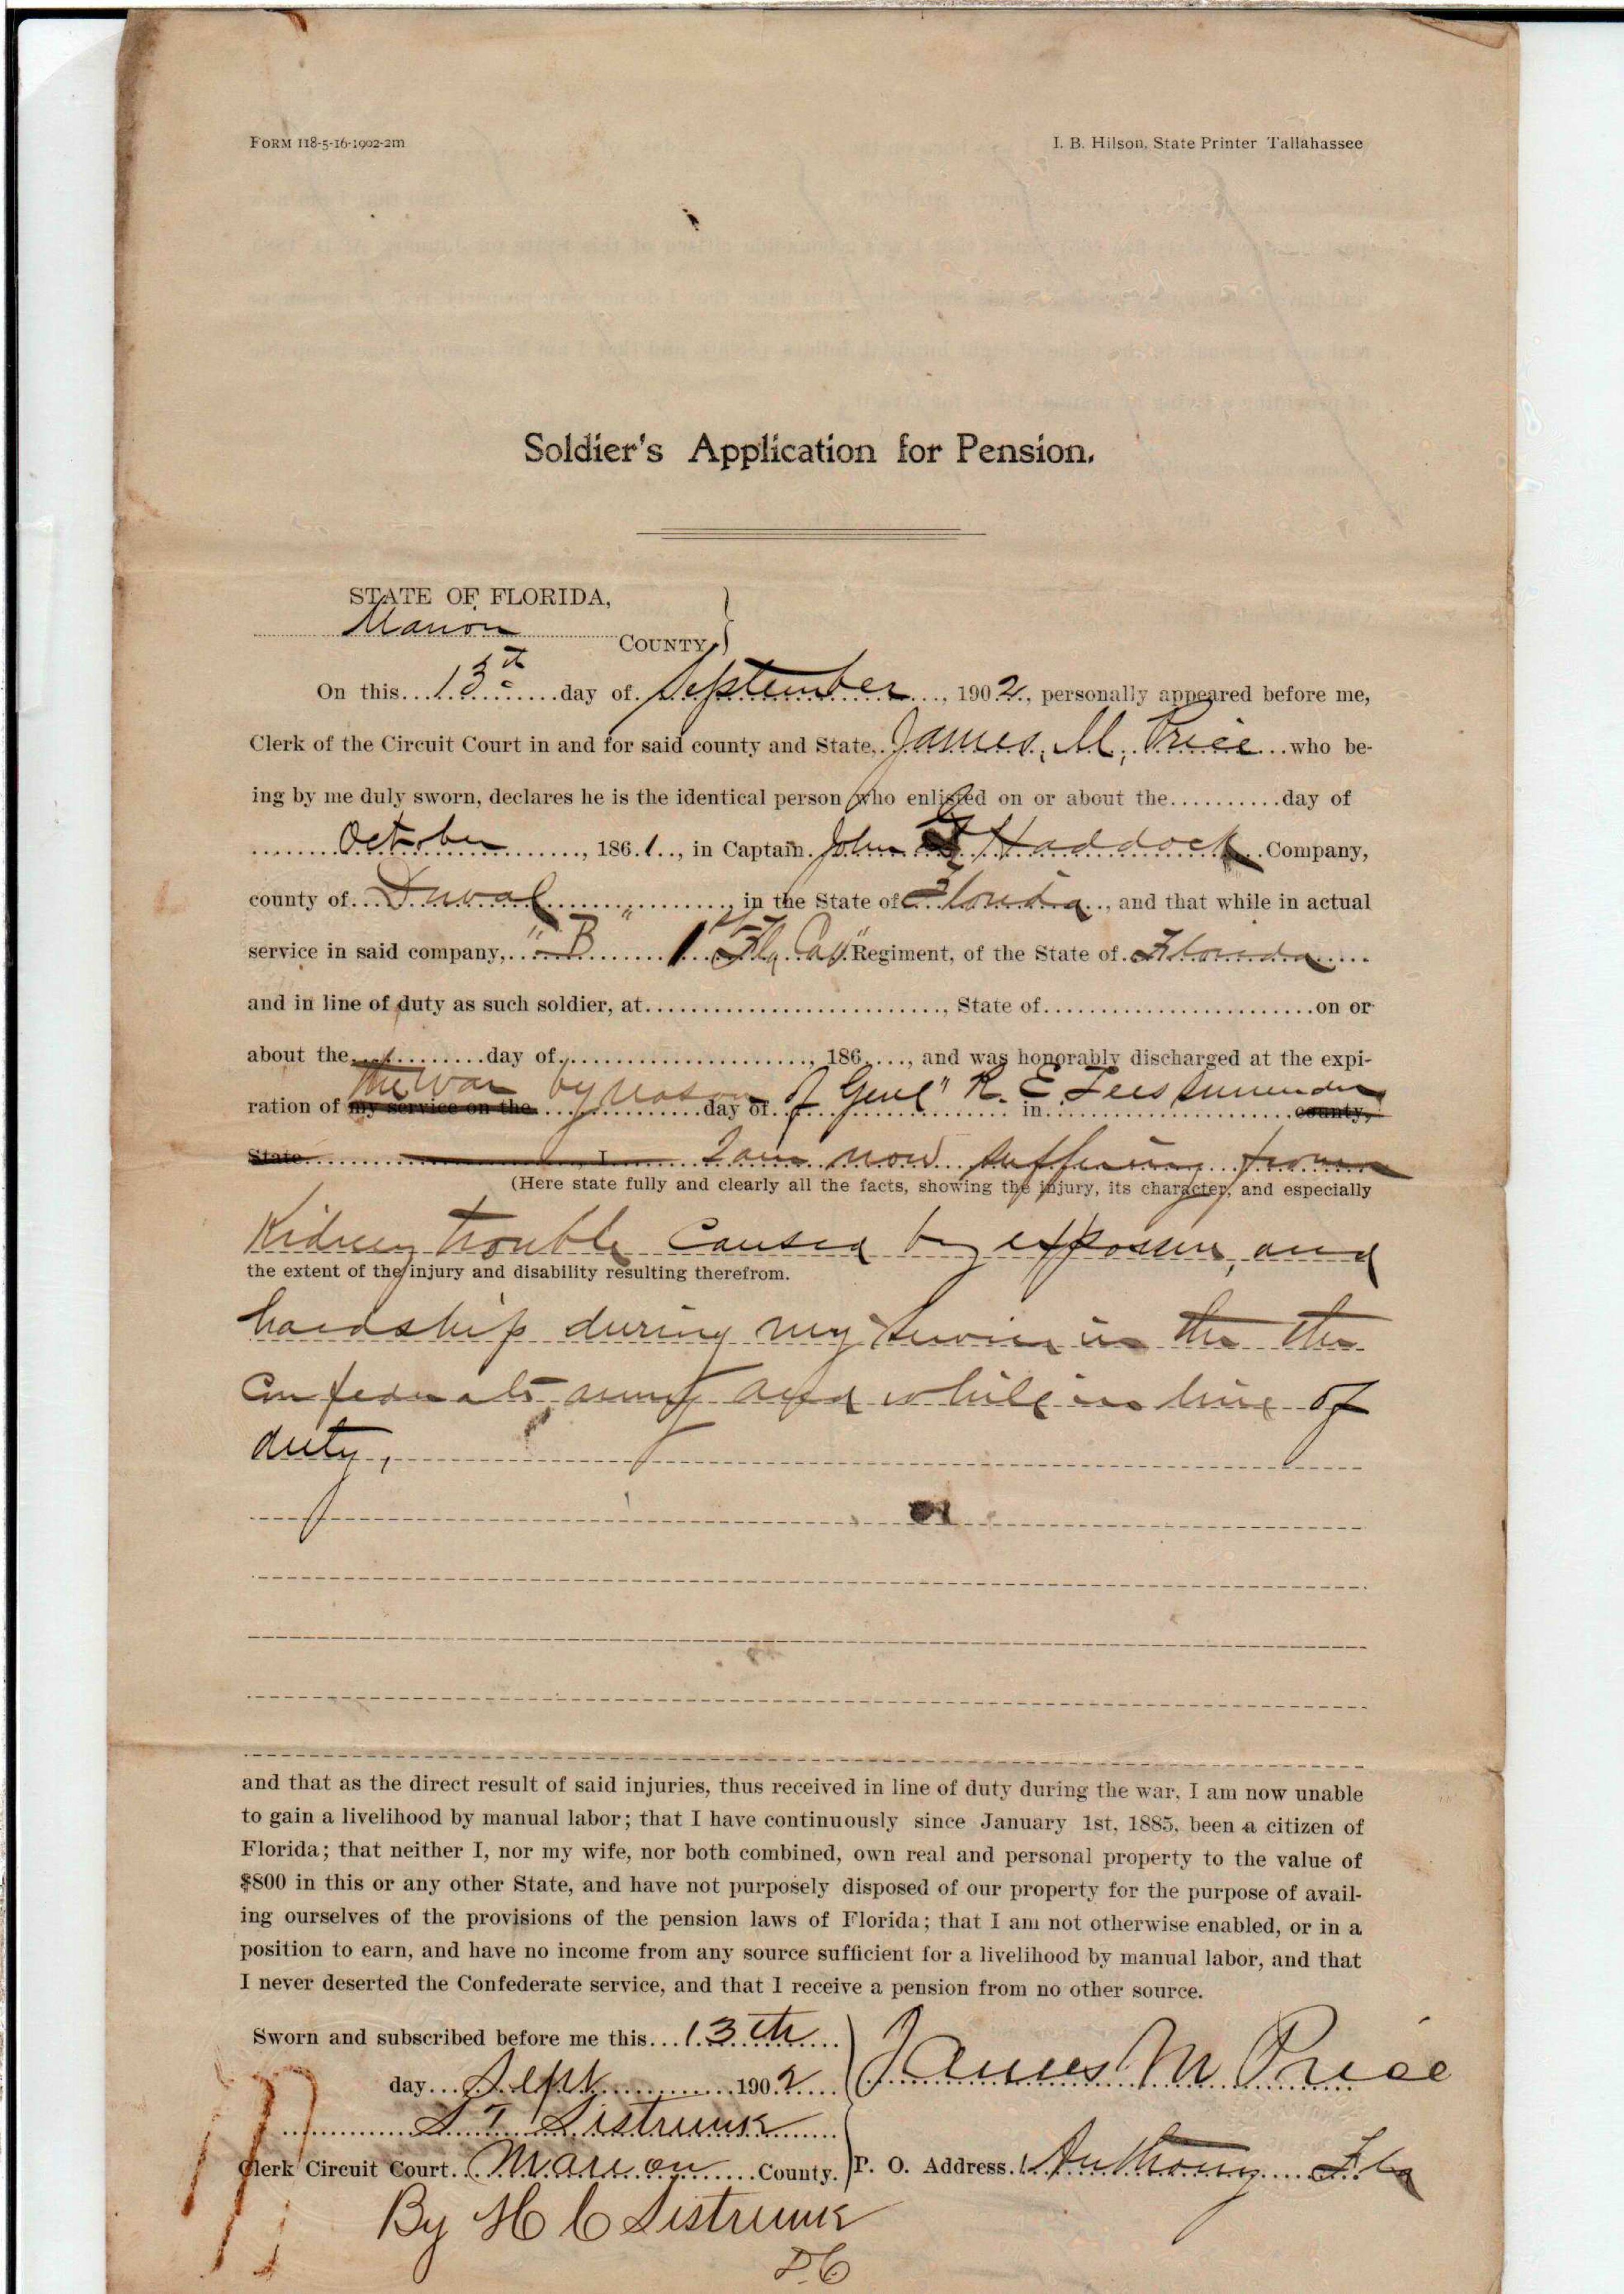 FORM 118-5-16-1902-2m
I. B. Hilson, State Printer Tallahassee
Soldier's Application for Pension.
STATE OF FLORIDA,
Marion COUNTY,
On this 13th day of September, 1902, personally appeared before me,
Clerk of the Circuit Court in and for said county and State, James, M, Price who be-
ing by me duly sworn, declares he is the identical person who enlisted on or about the..........day of
October, 1861, in Captain John Haddock Company,
county of Duval, in the State of Florida, and that while in actual
service in said company, "B" 1 Fla Cav Regiment, of the State of Florida
and in line of duty as such soldier, at.........................., State of........................on or
about the............day of......................, 186...., and was honorably discharged at the expi-
ration of my service on the the War by reason day of of Genl R. E Lees surrender in county,
State I I am now suffering from
(Here state fully and clearly all the facts, showing the injury, its character, and especially
Kidney trouble caused by exposure, and
the extent of the injury and disability resulting therefrom.
hardship during my service in the the
Confederate army and while in line of
duty,
and that as the direct result of said injuries, thus received in line of duty during the war, I am now unable
to gain a livelihood by manual labor; that I have continuously since January 1st, 1885, been a citizen of
Florida; that neither I, nor my wife, nor both combined, own real and personal property to the value of
$800 in this or any other State, and have not purposely disposed of our property for the purpose of avail-
ing ourselves of the provisions of the pension laws of Florida; that I am not otherwise enabled, or in a
position to earn, and have no income from any source sufficient for a livelihood by manual labor, and that
I never deserted the Confederate service, and that I receive a pension from no other source.
Sworn and subscribed before me this 13th
day Sept 1902
James M Price
S T Sistrunk
Clerk Circuit Court. Marion County.
P. O. Address. Anthony Fla
By H C Sistrunk
DC